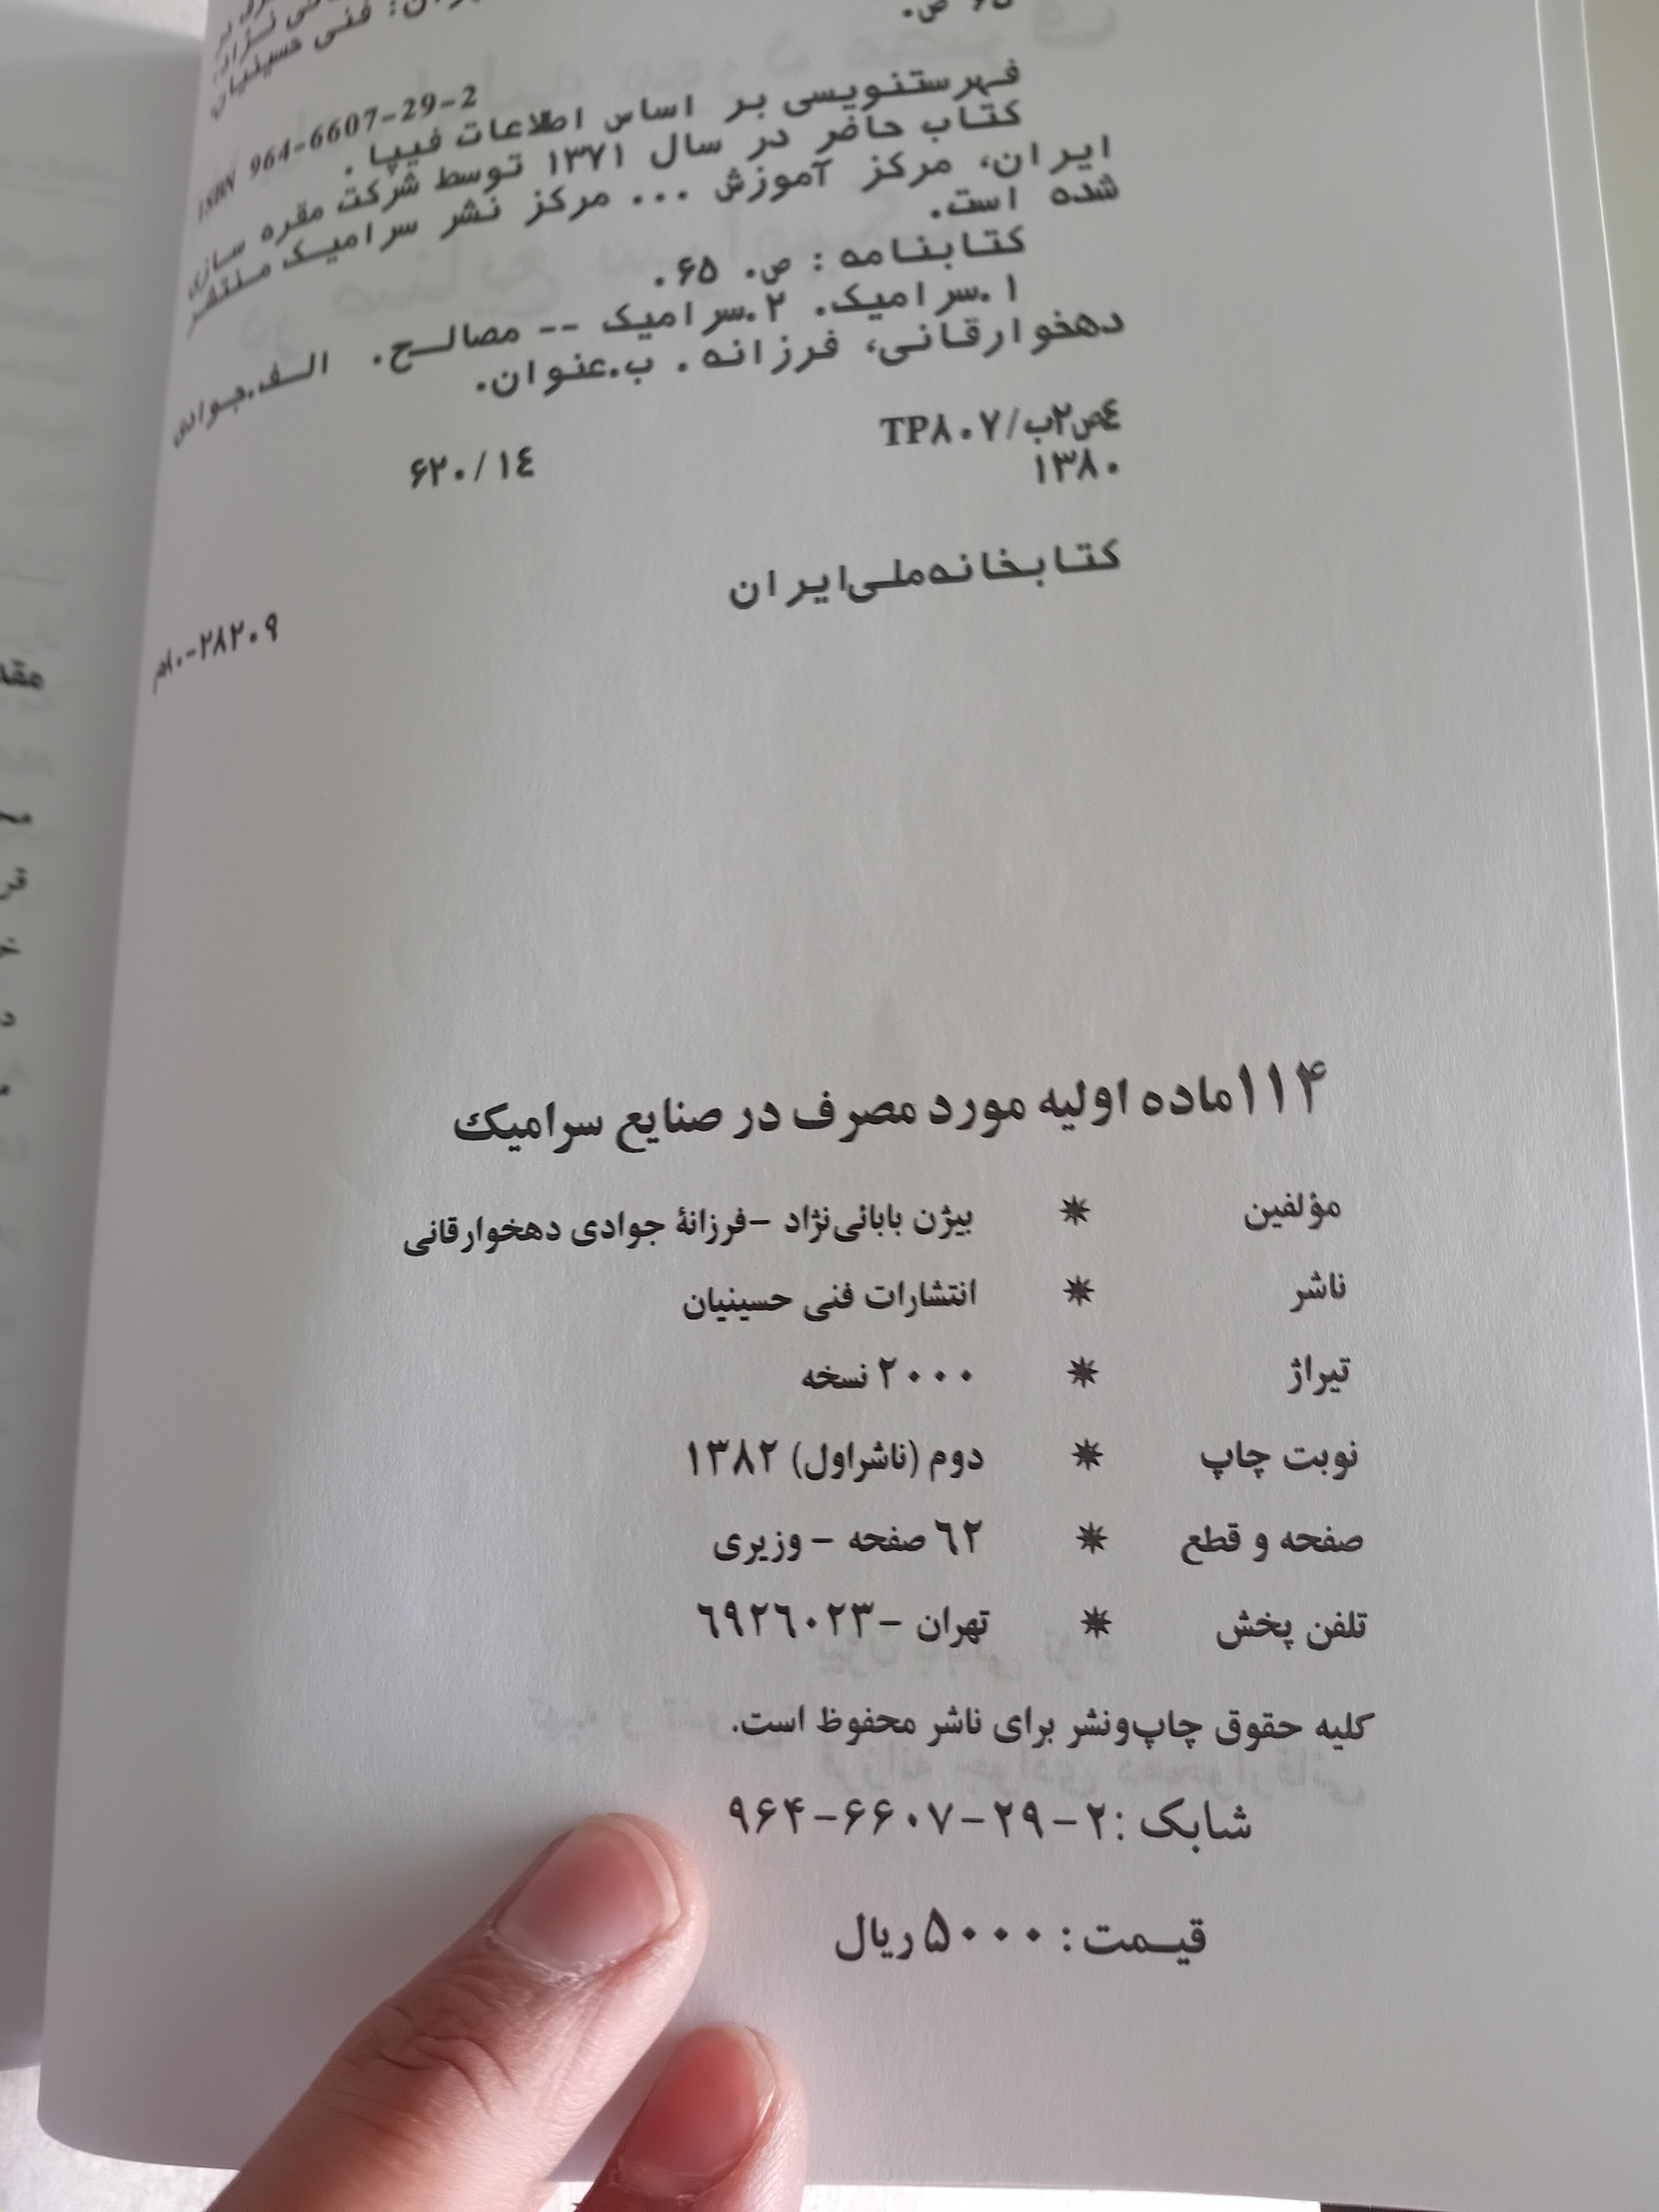 ۶۵ ص.
فنی حسینیان
ISBN 964-6607-29-2
فهرستنویسی بر اساس اطلاعات فیپا.
کتاب حاضر در سال ۱۳۷۱ توسط شرکت مقره سازی
ایران، مرکز آموزش ... مرکز نشر سرامیک منتشر
شده است.
کتابنامه: ص. ۶۵.
۱.سرامیک. ۲.سرامیک -- مصالح. الف.جوادی
دهخوارقانی، فرزانه. ب.عنوان.
TP۸۰۷/ب۲ص٤ ۶۲۰/۱٤
۱۳۸۰
کتابخانه‌ملی‌ایران
م۸۰-۲۸۲۰۹
۱۱۴ماده اولیه مورد مصرف در صنایع سرامیک
مؤلفین ✷ بیژن بابائی‌نژاد -فرزانهٔ جوادی دهخوارقانی
ناشر ✷ انتشارات فنی حسینیان
تیراژ ✷ ۲۰۰۰ نسخه
نوبت چاپ ✷ دوم (ناشراول) ۱۳۸۲
صفحه و قطع ✷ ٦۲ صفحه - وزیری
تلفن پخش ✷ تهران -٦۹۲٦۰۲۳
کلیه حقوق چاپ‌ونشر برای ناشر محفوظ است.
شابک :۲-۲۹-۶۶۰۷-۹۶۴
قیمت: ۵۰۰۰ریال